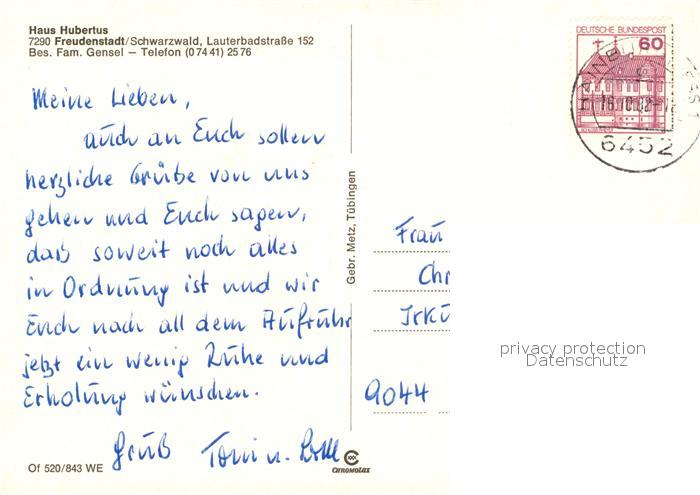 Haus Hubertus
7290 Freudenstadt/Schwarzwald, Lauterbadstraße 152
Bes. Fam. Gensel — Telefon (0 74 41) 25 76
Meine Lieben,
auch an Euch sollen
herzliche Grüße von uns
gehen und Euch sagen,
daß soweit noch alles
in Ordnung ist und wir
Euch nach all dem Aufruhr
jetzt ein wenig Ruhe und
Erholung wünschen.
Gruß Toni u.
Of 520/843 WE
CHROMOLUX
Gebr. Metz, Tübingen
DEUTSCHE BUNDESPOST
60
HAINBU
6452
Frau
Chr
Irku
9044
privacy protection
Datenschutz